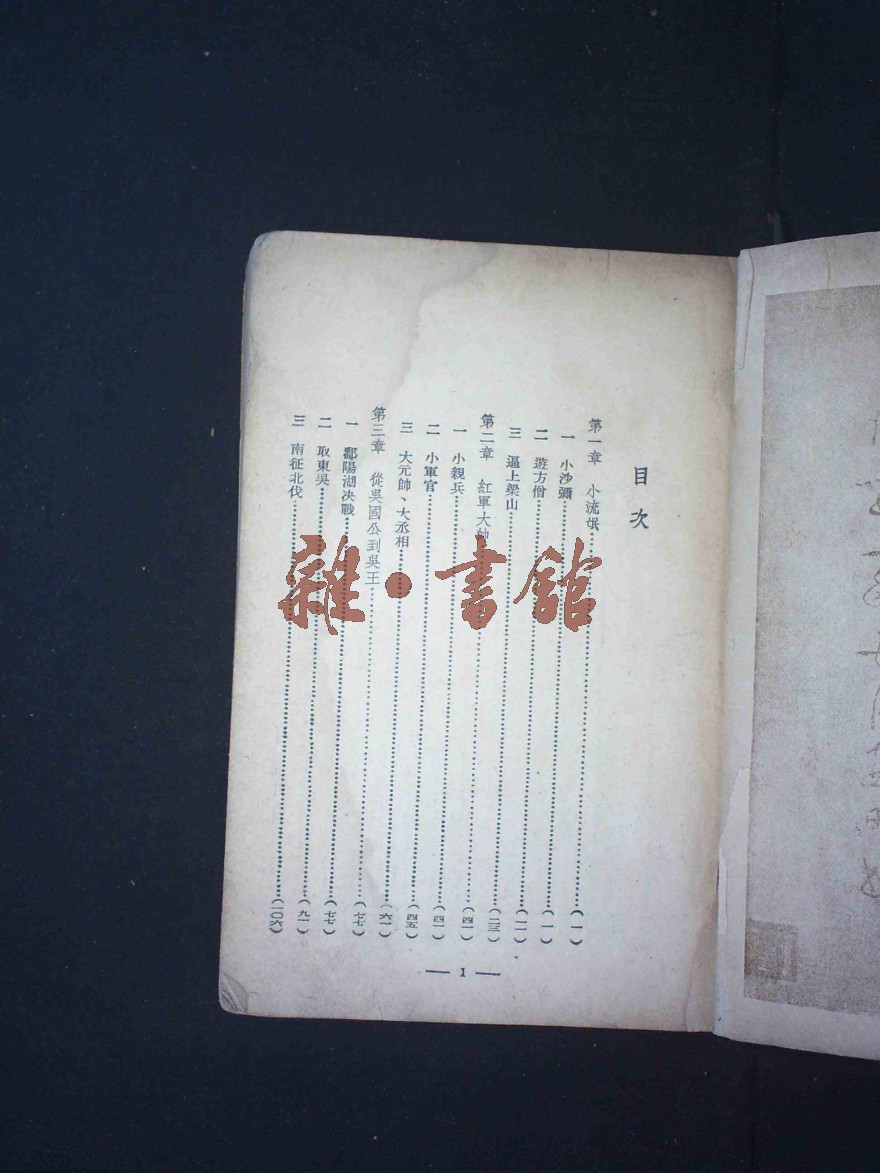 目次
第一章 小流氓……(一)
一 小沙彌……(一)
二 遊方僧……(一一)
三 逼上梁山……(二三)
第二章 紅軍大帥……(四一)
一 小親兵……(四一)
二 小軍官……(四五)
三 大元帥、大丞相……(六一)
第三章 從吳國公到吳王……(七七)
一 鄱陽湖決戰……(七七)
二 取東吳……(九一)
三 南征北伐……(一〇六)
— 1 —
雜·書館